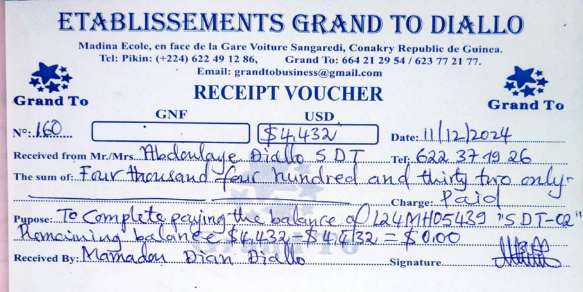 ETABLISSEMENTS GRAND TO DIALLO
Madina Ecole, en face de la Gare Voiture Sangaredi, Conakry Republic de Guinea.
Tel: Pikin: (+224) 622 49 12 86, Grand To: 664 21 29 54 / 623 77 21 77.
Email: grandtobusiness@gmail.com
Grand To
RECEIPT VOUCHER
Grand To
GNF USD
N°: 160 $4,432 Date: 11/12/2024
Received from Mr./Mrs. Abdoulaye Diallo SDT Tel: 622 37 19 26
The sum of: Four thousand four hundred and thirty two only-
Charge: Paid
Pupose: To Complete paying the balance of L24MH05439 "SDT-02"
Remaining balance $4,432 - $4,432 = $0.00
Received By: Mamadou Dian Diallo Signature